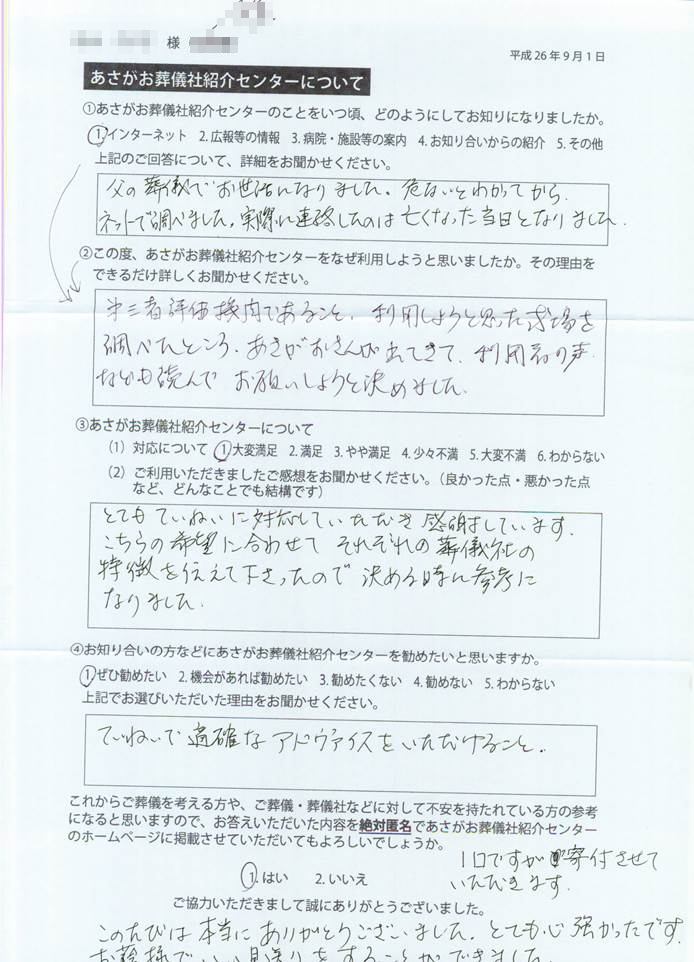 様
平成26年9月1日
あさがお葬儀社紹介センターについて
①あさがお葬儀社紹介センターのことをいつ頃、どのようにしてお知りになりましたか。
1.インターネット 2.広報等の情報 3.病院・施設等の案内 4.お知り合いからの紹介 5.その他
上記のご回答について、詳細をお聞かせください。
父の葬儀でお世話になりました。危ないとわかってから
ネットで調べました。実際に連絡したのは亡くなった当日となりました。
②この度、あさがお葬儀社紹介センターをなぜ利用しようと思いましたか。その理由を
できるだけ詳しくお聞かせください。
第三者評価機関であること。利用しようと思った式場を
調べたところ、あさがおさんが出てきて、利用者の声
なども読んでお願いしようと決めました。
③あさがお葬儀社紹介センターについて
(1) 対応について 1.大変満足 2.満足 3.やや満足 4.少々不満 5.大変不満 6.わからない
(2) ご利用いただきましたご感想をお聞かせください。(良かった点・悪かった点
など、どんなことでも結構です)
とてもていねいに対応していただき感謝しています。
こちらの希望に合わせてそれぞれの葬儀社の
特徴を伝えて下さったので決める時に参考に
なりました。
④お知り合いの方などにあさがお葬儀社紹介センターを勧めたいと思いますか。
1.ぜひ勧めたい 2.機会があれば勧めたい 3.勧めたくない 4.勧めない 5.わからない
上記でお選びいただいた理由をお聞かせください。
ていねいで適確なアドヴァイスをいただけること。
これからご葬儀を考える方や、ご葬儀・葬儀社などに対して不安を持たれている方の参考
になると思いますので、お答えいただいた内容を絶対匿名であさがお葬儀社紹介センター
のホームページに掲載させていただいてもよろしいでしょうか。
1.はい 2.いいえ
1口ですが寄付させて
いただきます。
ご協力いただきまして誠にありがとうございました。
このたびは本当にありがとうございました。とても心強かったです。
お蔭様でいい見送りをすることができました。